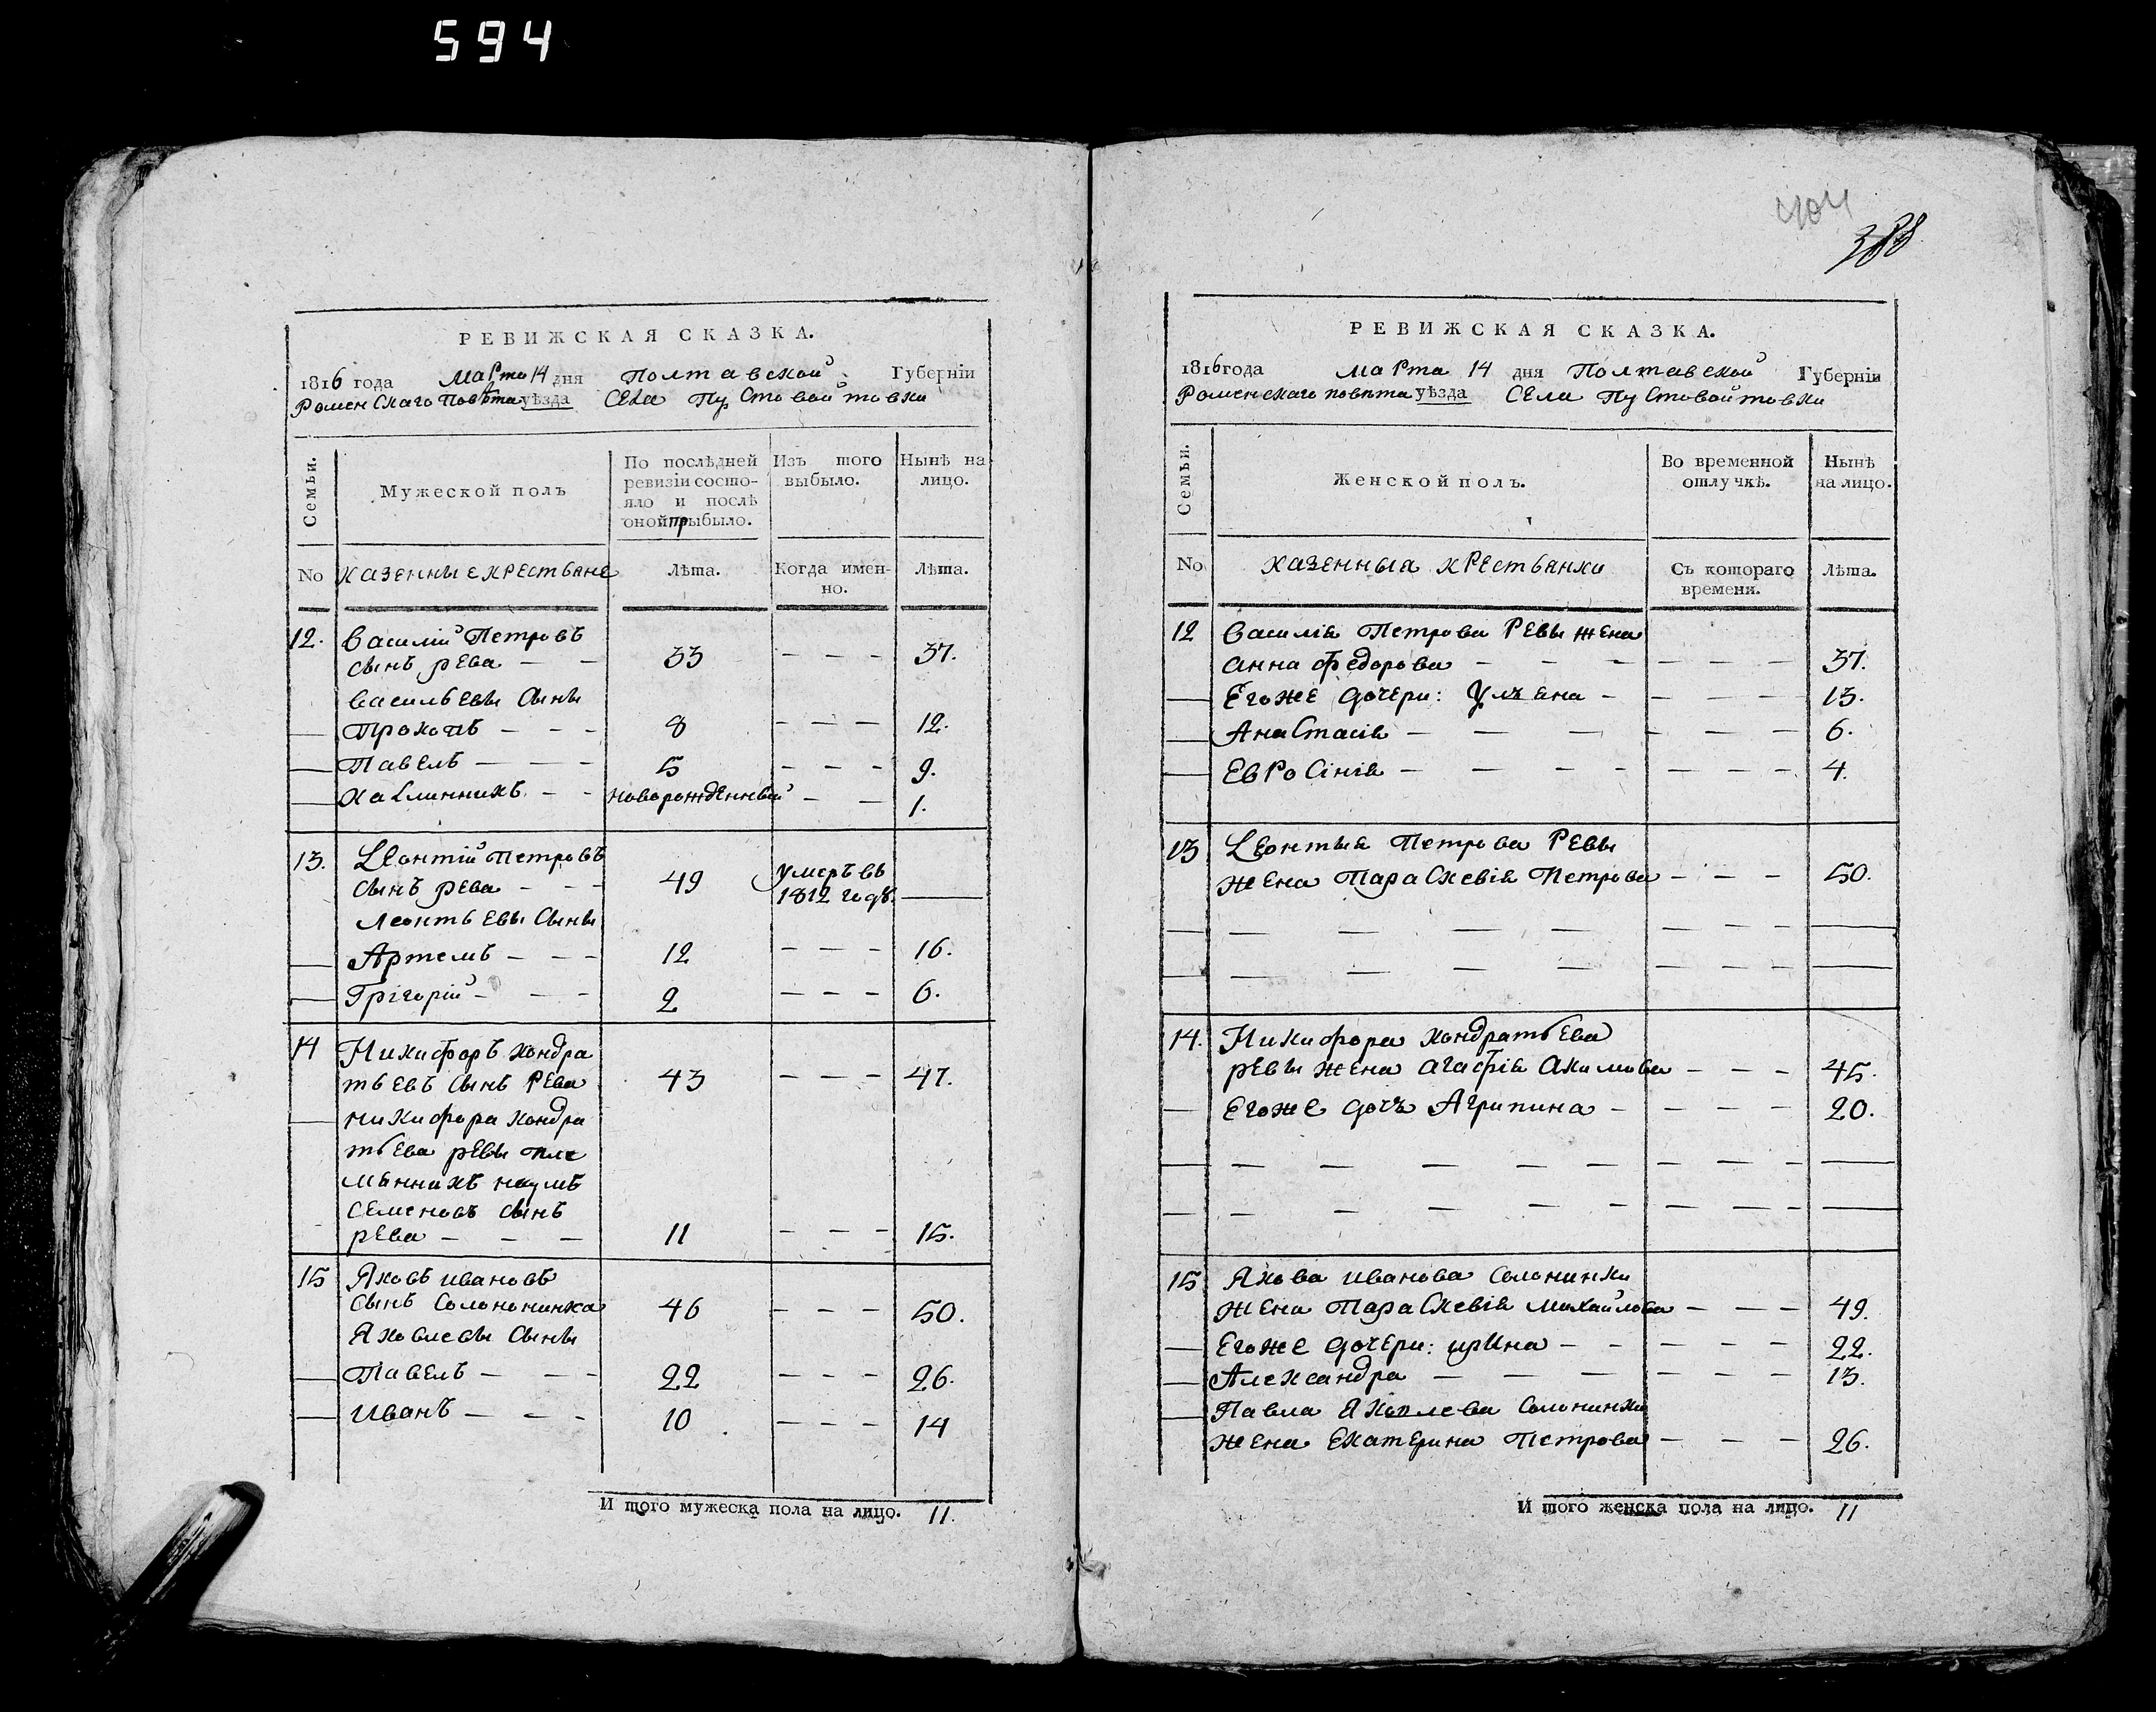 594
РЕВИЖСКАЯ СКАЗКА.
1816 года Марта 14 дня Полтавской Губерніи
Роменскаго Повѣта уѣзда Села Пустовойтовки
Семьи.
Мужеской полъ
По послѣдней ревизіи состояло и послѣ оной прыбыло.
Изъ того выбыло.
Нынѣ на лицо.
No казенные крестьяне Лѣта. Когда именно. Лѣта.
12. Василій Петровъ
сынъ рева — — 33 — — — 37.
васильевы сыны
— Прокопъ — — — 8 — — — 12.
— Павелъ — — — 5 — — — 9.
— Каллинникъ — — новорожденный — — 1.
13. Леонтій Петровъ
сынъ рева — — — 49 умеръ въ 1812 годѣ. —
Леонтьевы сыны
— Артемъ — — — 12 — — — 16.
— Грігорій — — — 2 — — — 6.
14 Никифоръ кондра
тьевъ сынъ Рева 43 — — — 47.
— никифора кондра
тьева ревы пле
мянникъ наумъ
семеновъ сынъ
рева — — — 11 — — — 15.
15 Яковъ ивановъ
сынъ Солононинка 46 — — — 50.
Яковлевы сыны
— Павелъ — — — 22 — — — 26.
— иванъ — — — 10 — — — 14
И того мужеска пола на лицо. 11.
404
388
РЕВИЖСКАЯ СКАЗКА.
1816 года марта 14 дня Полтавской Губерніи
Роменскаго повѣта уѣзда Села Пустовойтовки
Семьи.
Женской полъ.
Во временной отлучкѣ.
Нынѣ на лицо.
No казенныя крестьянки Съ котораго времени. Лѣта.
12 Василія Петрова Ревы жена
анна федорова — — — — — — 37.
— Егоже дочери: Ульяна — — — — 13.
— Анастасія — — — — — — 6.
— Евросінія — — — — — — — 4.
13 Леонтия Петрова Ревы
жена Параскевія Петрова — — — 50.
— — — — — — — — —
— — — — — — — — —
14. Никифора кондратьева
ревы жена агафія акимова — — — 45.
— Егоже дочь Агрипина — — — — 20.
— — — — — — — — — —
— — — — — — — — — —
15 Якова иванова Солонинки
жена Параскевія михайлова — — — 49.
— Егоже дочери: ирина — — — — — 22.
— Александра — — — — — — 13.
— Павла Якоплева Солонинки
жена Екатерина Петрова — — — 26.
И того женска пола на лицо. 11